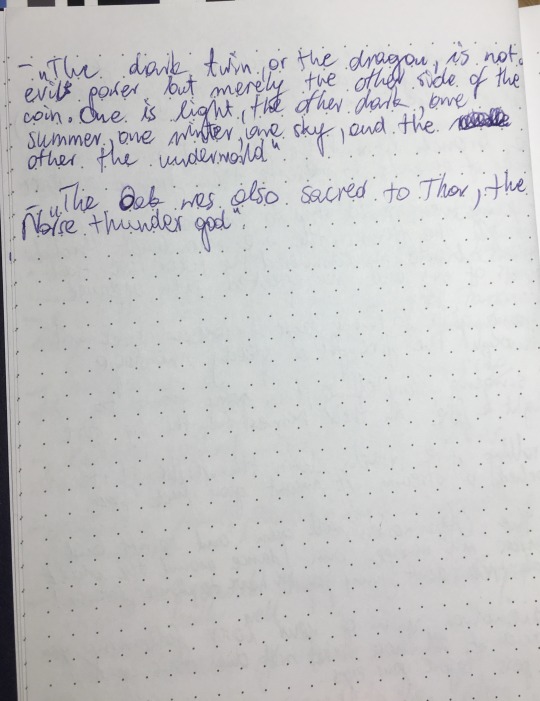 - „The dark twin, or the dragon, is not
evil power but merely the other side of the
coin. One is light, the other dark, one
summer, one winter, one sky, and the
other the underworld".
- „The Oak was also sacred to Thor, the
Norse thunder god".